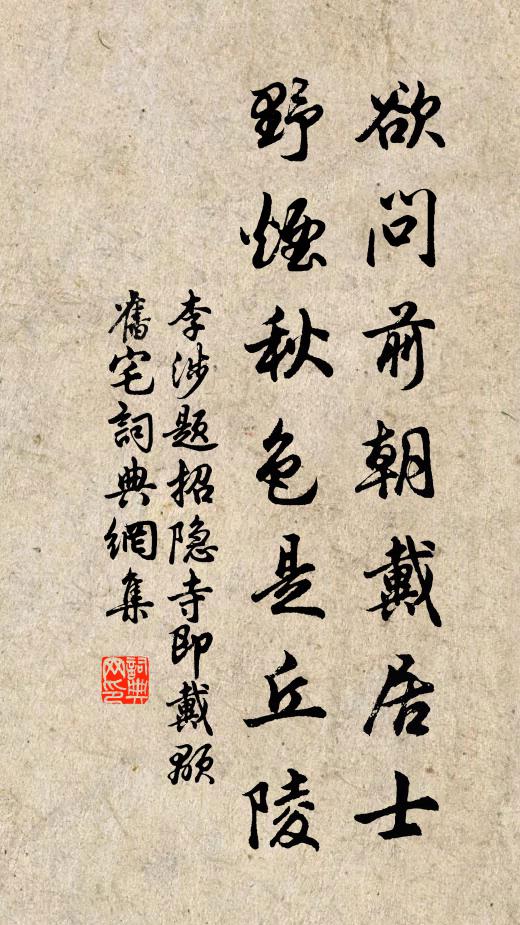 欲问前朝戴居士
野煙秋色是丘陵
李涉题招隐寺即戴顒
舊宅詞典網集
詞典網印